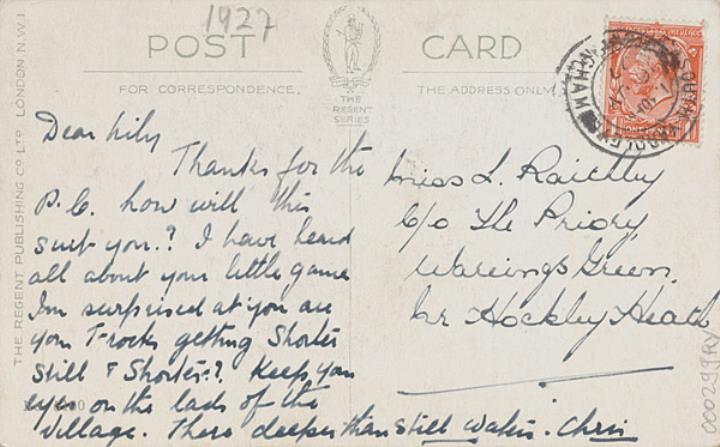 1927
POST CARD
FOR CORRESPONDENCE.
THE ADDRESS ONLY
THE
REGENT
SERIES
THE REGENT PUBLISHING CO LTD LONDON N.W.1
Dear Lily
Thanks for the
P.C. how will this
suit you.? I have heard
all about your little game
Im surprised at you are
your Frocks getting Shorter
still & Shorter.? Keep your
eye on the lads of the
village. There deeper than still water. Chris
Miss L.
c/o The Priory,
Warings Green,
Nr Hockley Heath
BIRMINGHAM
000299RV